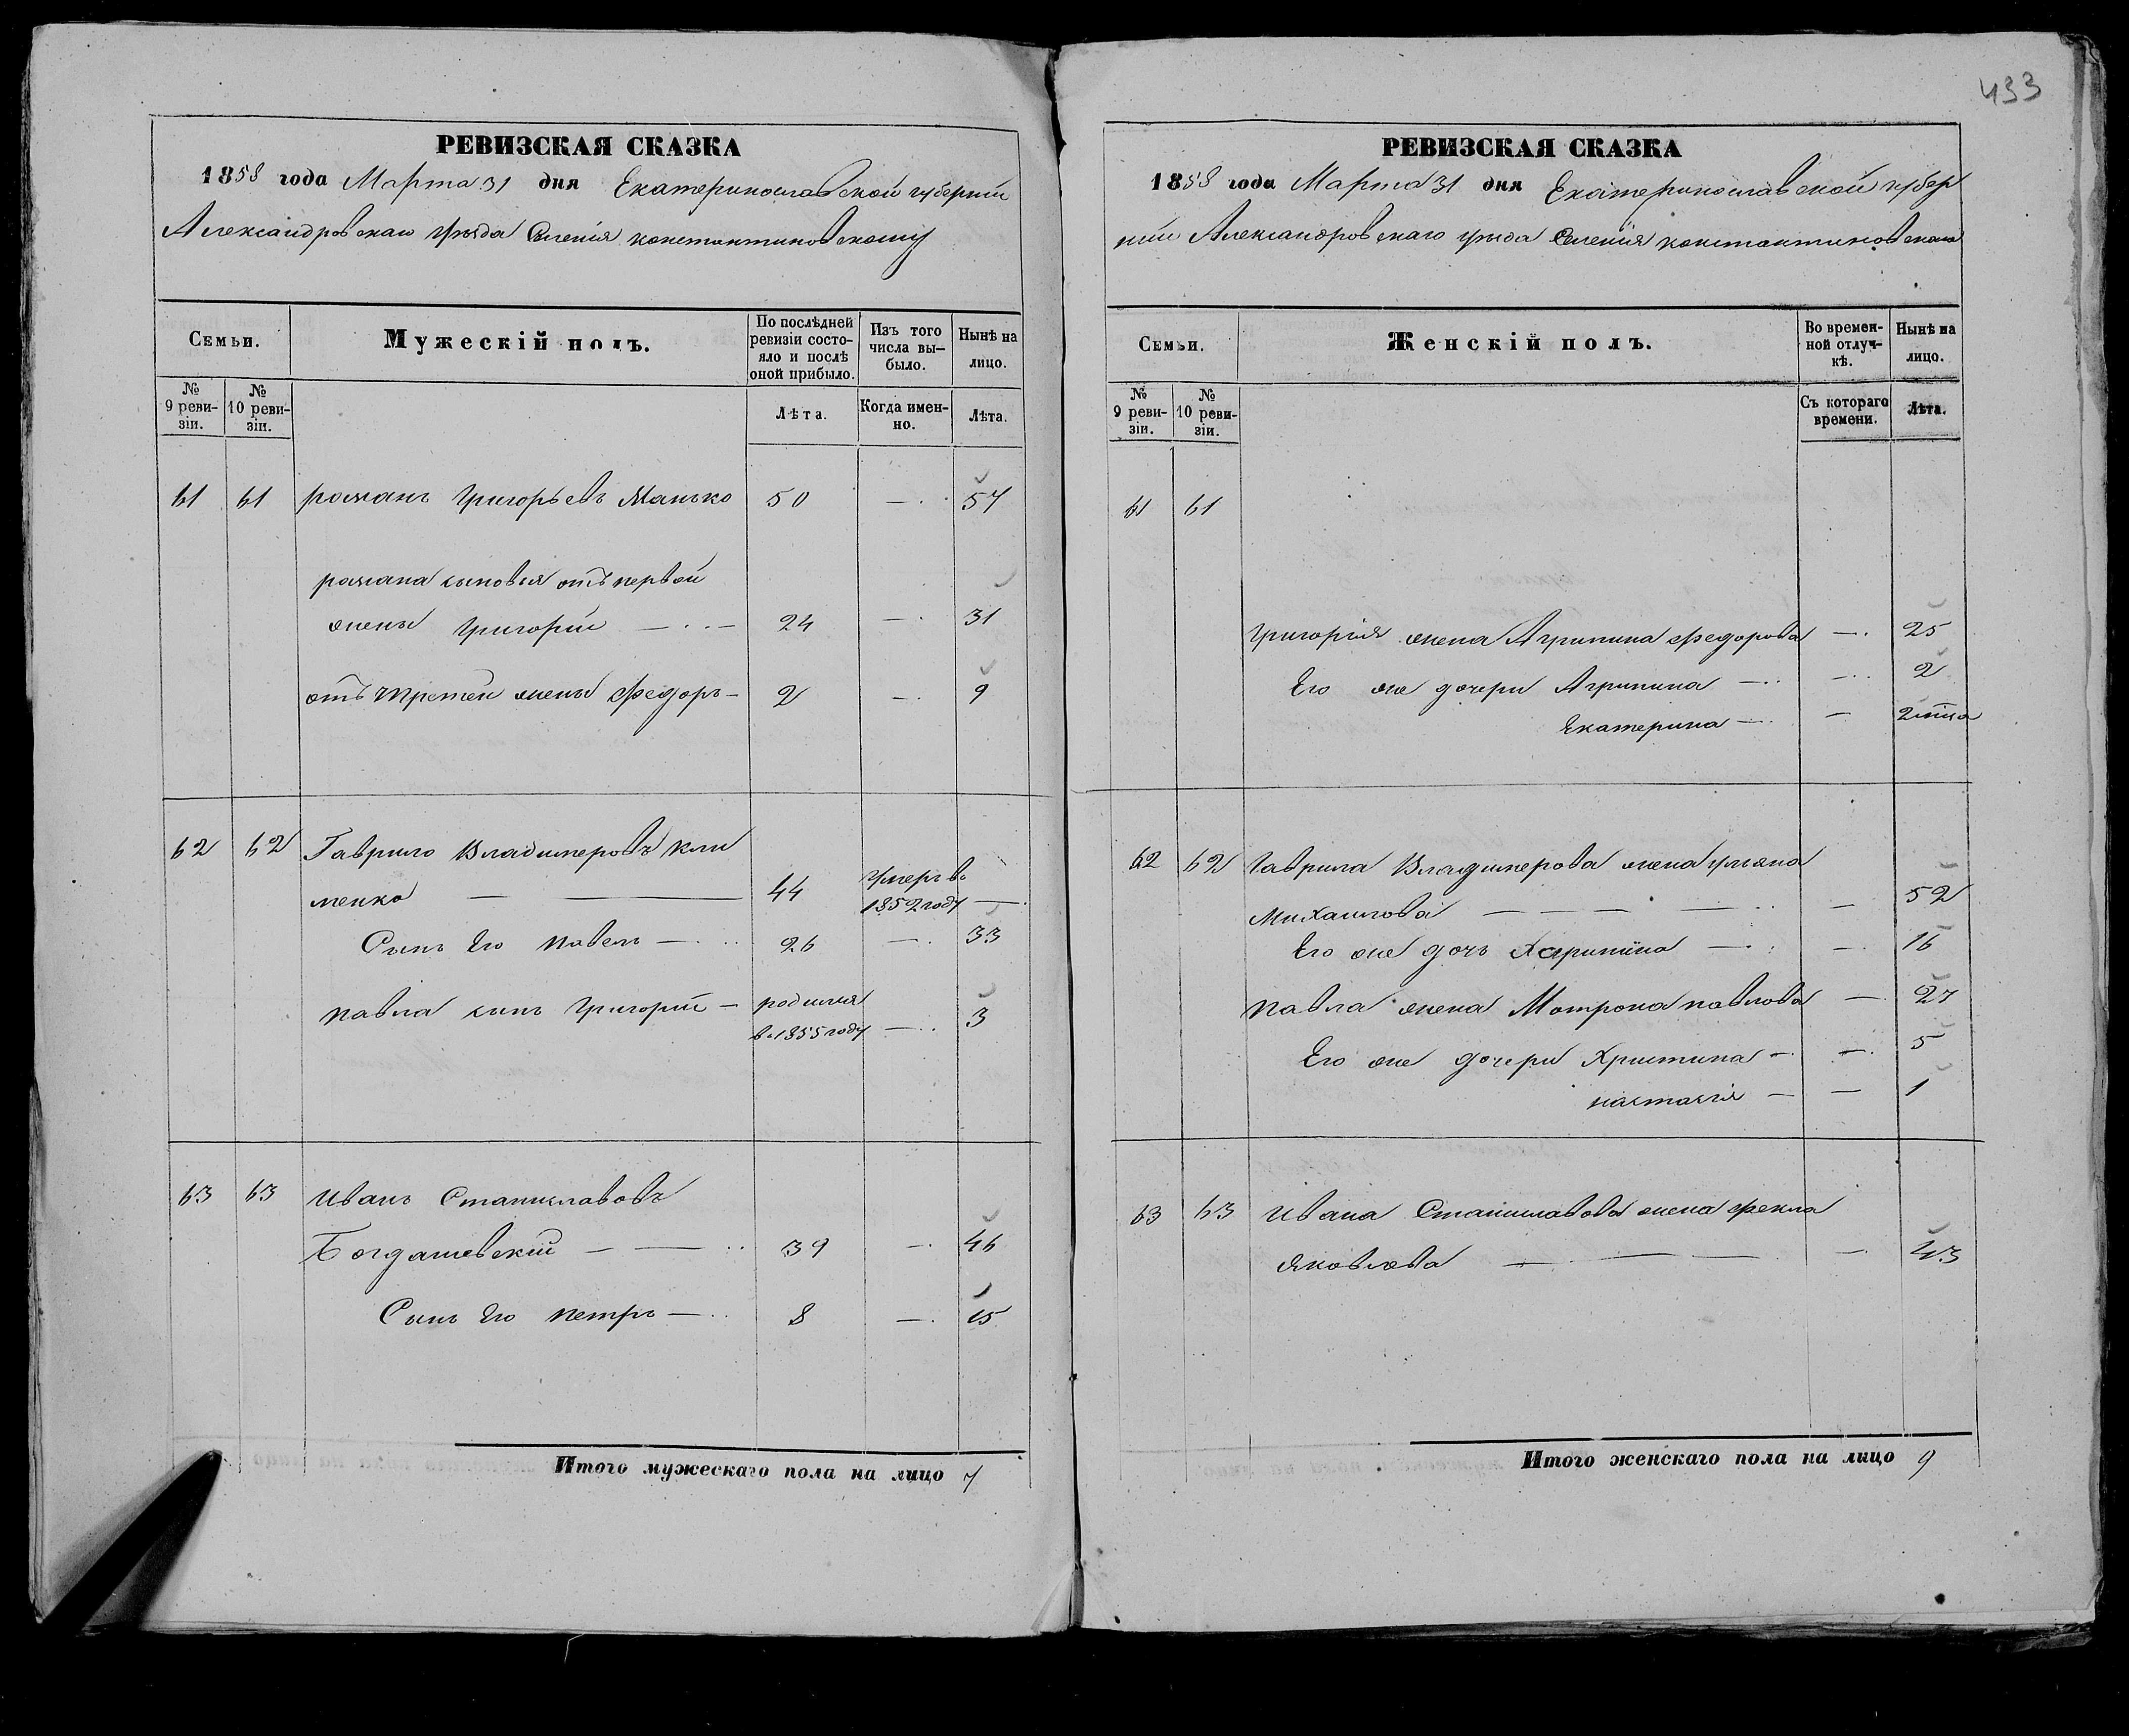 433
РЕВИЗСКАЯ СКАЗКА
1858 года Марта 31 дня Екатеринославской губернии
Александровскаго уѣзда Селенія константиновскому
Семьи.
Мужескій полъ.
По послѣдней ревизіи состояло и послѣ оной прибыло.
Изъ того числа выбыло.
Нынѣ на лицо.
№ 9 ревизіи.
№ 10 ревизіи.
Лѣта.
Когда именно.
Лѣта.
61 61 романъ Григорьевъ Манько 50 — 57
романа сыновья отъ первой
жены Григорій — 24 — 31
отъ третей жены Федоръ — 2 — 9
62 62 Гаврило Владимеровъ Кли
менко — 44 Умеръ в. 1852 году —
Сынъ Его павелъ — 26 — 33
павла сынъ Григорій — родился в. 1855 году — 3
63 63 Иванъ Станиславовъ
Богдашевскій — 39 — 46
Сынъ Его петръ — 8 — 15
Итого мужескаго пола на лицо 7
РЕВИЗСКАЯ СКАЗКА
1858 года Марта 31 дня Екатеринославской губер
ніи Александровскаго уѣзда Селенія константиновскаго
Семьи.
Женскій полъ.
Во временной отлучкѣ.
Нынѣ на лицо.
№ 9 ревизіи.
№ 10 ревизіи.
Съ котораго времени.
Лѣта.
61 61
Григорія жена Агрипина Федорова — 25
Его же дочери Агрипина — 2
Екатерина —
62 62 Гаврила Владимерова жена Ульяна
Михаилова — 52
Его же дочь — 16
павла жена Мотрона павлова — 27
Его же дочери Христина — 5
настасія — 1
63 63 Ивана Станиславова жена Фекла
Яковлева — 43
Итого женскаго пола на лицо 9